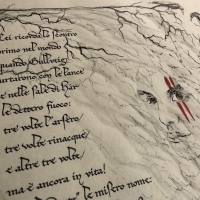 Lei ricorda lo scontro
primo nel mondo
quando Gullveig
urtarono con le lance
e nelle sale di Hár
le dettero fuoco:
tre volte l'arsero
tre volte rinacque
e altre tre volte
ma è ancora in vita!
le misero nome: